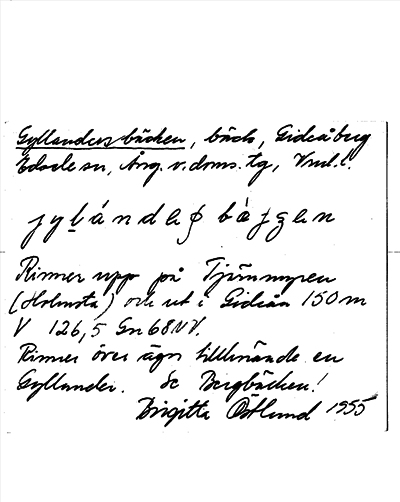 Gyllandersbäcken, bäck, Gideåberg
Edsele sn, Ång. v. doms. tg, Vnrl. l.
jylánde bäjen
Rinner upp på Tjärnmyren
(Holmsta) och ut i Gideån 150 m
V 126,5 Gn 68 NV.
Rinner över ägor tillhörande en
Gyllander. Se Bergbäcken!
Birgitta Östlund 1955